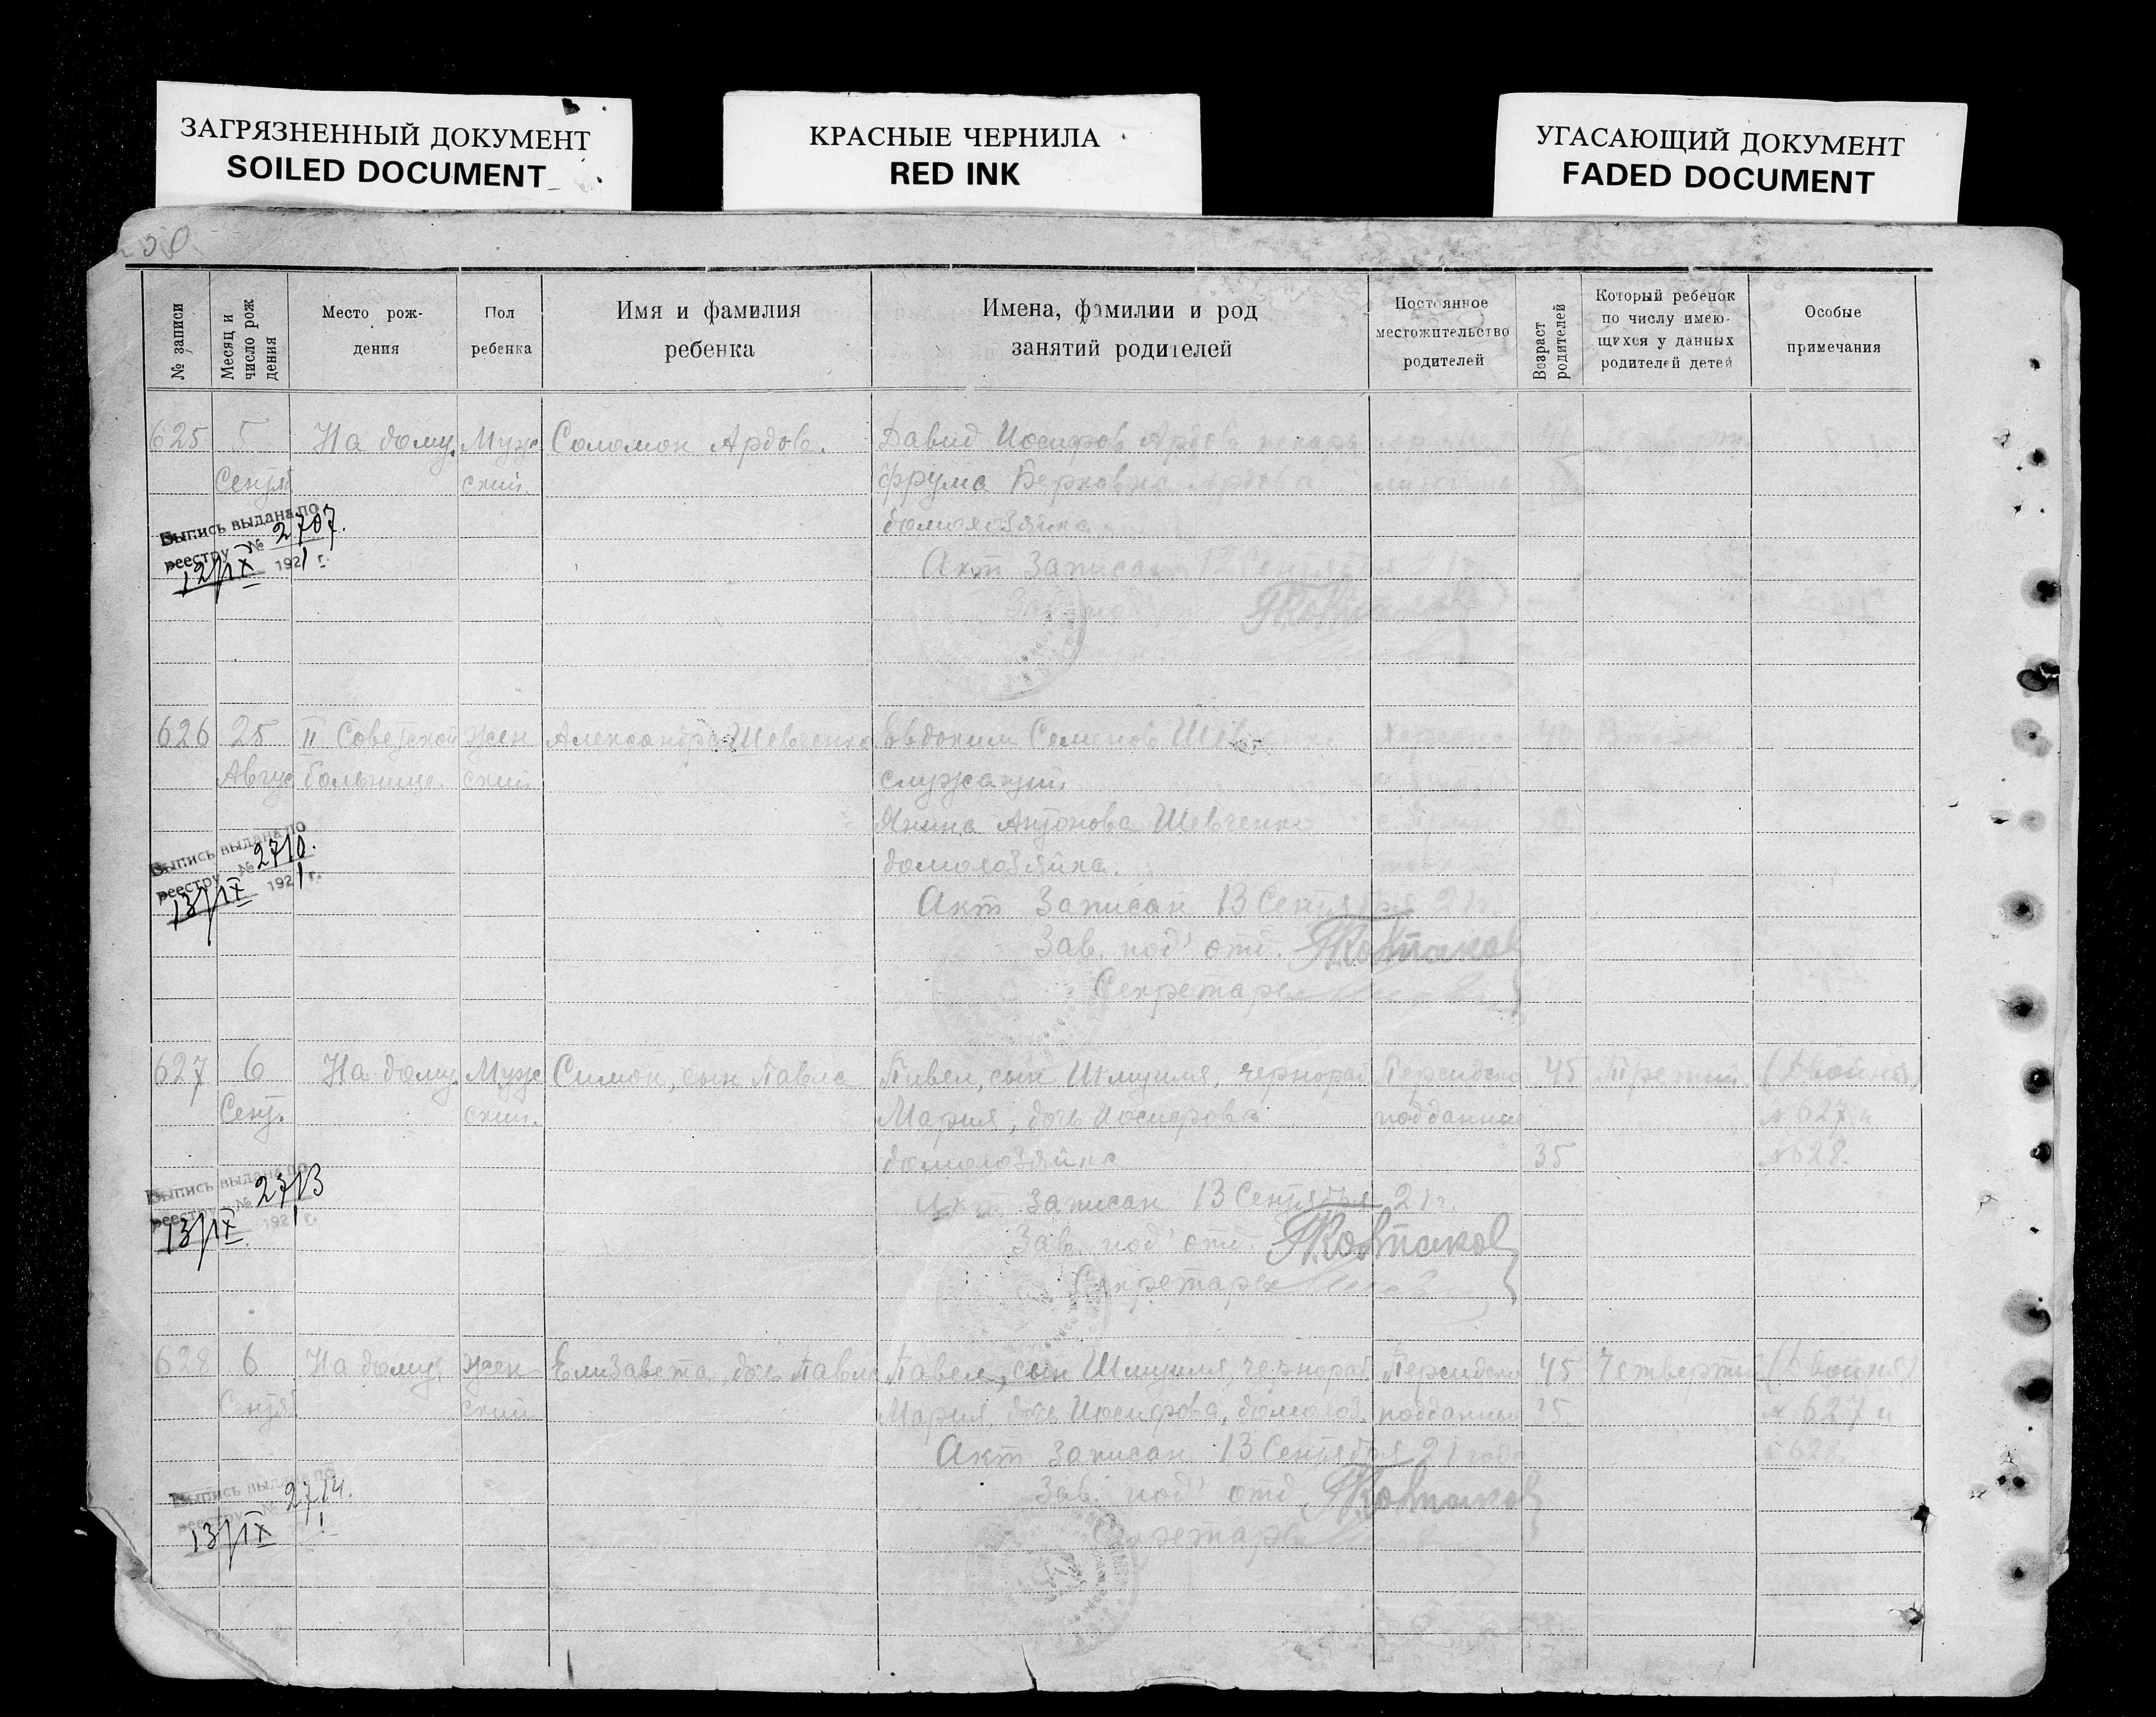 ЗАГРЯЗНЕННЫЙ ДОКУМЕНТ
SOILED DOCUMENT
КРАСНЫЕ ЧЕРНИЛА
RED INK
УГАСАЮЩИЙ ДОКУМЕНТ
FADED DOCUMENT
50
№ записи
Месяц и
число рож
дения
Место рож-
дения
Пол
ребенка
Имя и фамилия
ребенка
Имена, фамилии и род
занятий родителей
Постоянное
местожительство
родителей
Возраст
родителей
Который ребенок
по числу имею-
щихся у данных
родителей детей
Особые
примечания
625 5 На дому. Муж Соломон Ардов. Давид Иосифов Ардов
Сентяб ский. Фрума Берковна
домохозяйка
Выпись выдана по
реестру № 2707.
12/IX 1921 г.
Акт Записан 12 Сентября
626 25 II Советской жен Александра Шевченко Евдоким Семенов
Авгус больнице. ский служащий
Янина Антонова Шевченко
домохозяйка.
Выпись выдана по
реестру № 2710.
13/IX 1921 г.
Акт Записан 13 Сентября 21 г.
Зав. под' отд.
Секретарь
627 6 На дому. Муж Симон, сын Павла Павел, сын Шмуиля, чернораб Персидско 45 Третий (Двойня)
Сент. ский. Мария, дочь Иосифова подданные № 627 и
домохозяйка 35 № 628.
Выпись выдана по
реестру № 2713
13/IX 1921 г.
Акт Записан 13 Сентября 21 г.
Зав. под' отд.
Секретарь
628 6 На дому. жен Елизавета, дочь Павла Павел, сын Шмуиля, чернораб. Персидско 45 Четвертый (Двойня)
Сентяб ский Мария, дочь Иосифова, домохоз. подданные 35. № 627 и
Акт Записан 13 Сентября 21 года № 628.
Выпись выдана по
реестру № 2714.
13/IX
Зав. под' отд
Секретарь